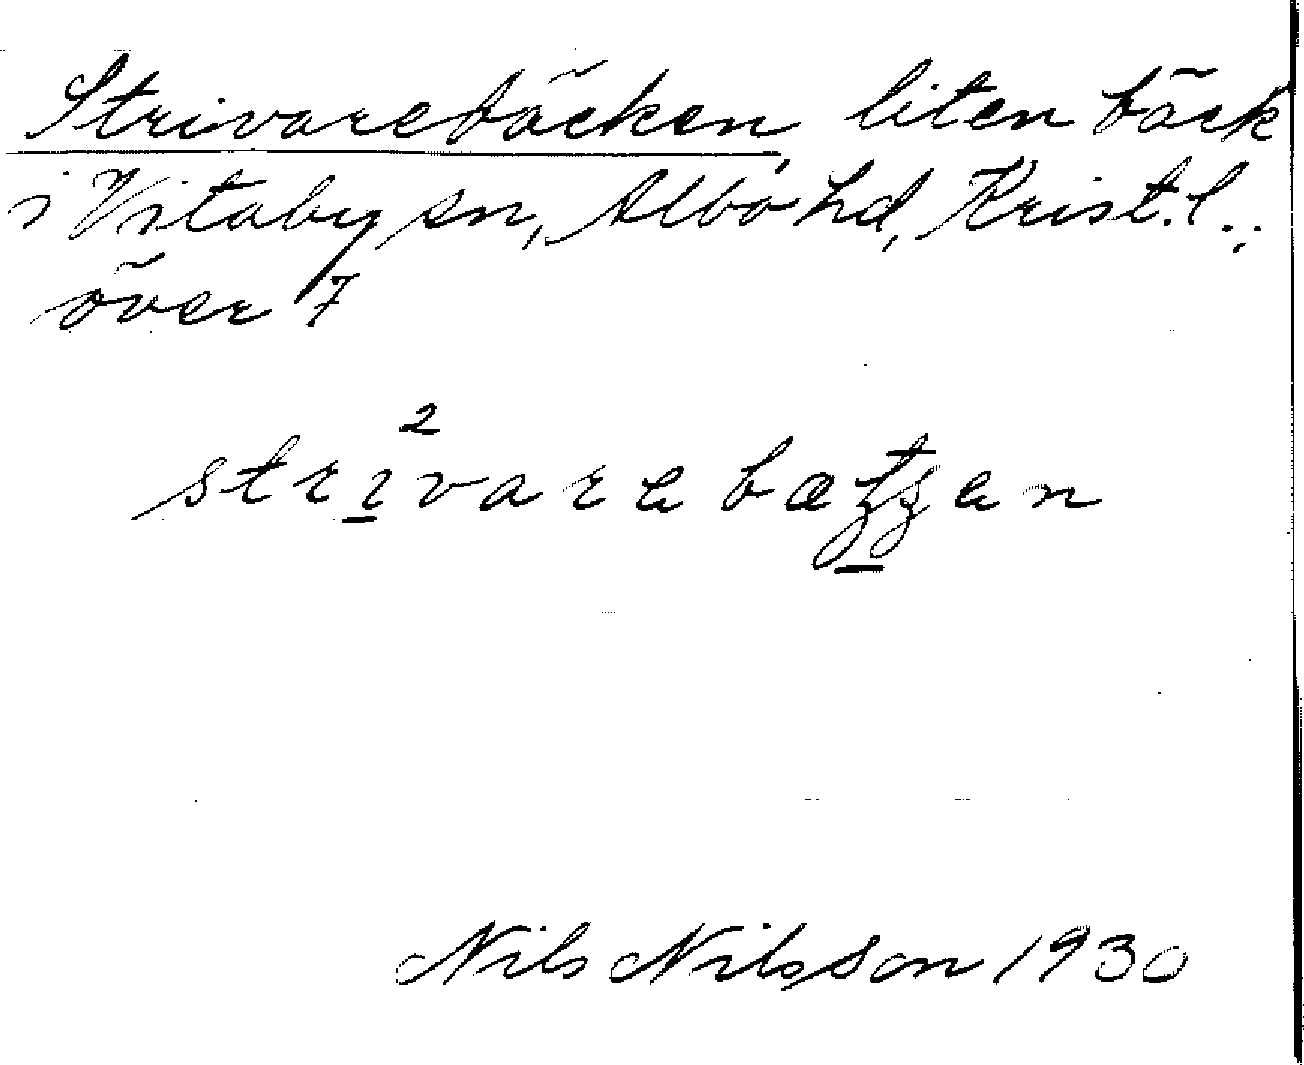 Strivarebäcken, liten bäck
i Vitaby sn, Albo hd, Krist. l.;
över 7
2
strivare bæʒʒen
Nils Nilsson 1930